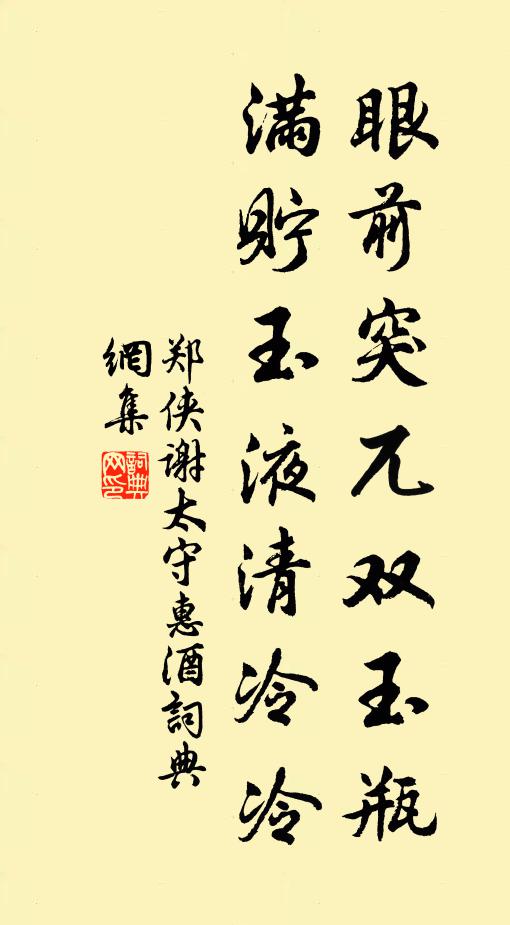 眼前突兀双玉瓶
满贮玉液清冷冷
郑侠谢太守惠酒词典
網集
詞典
网印